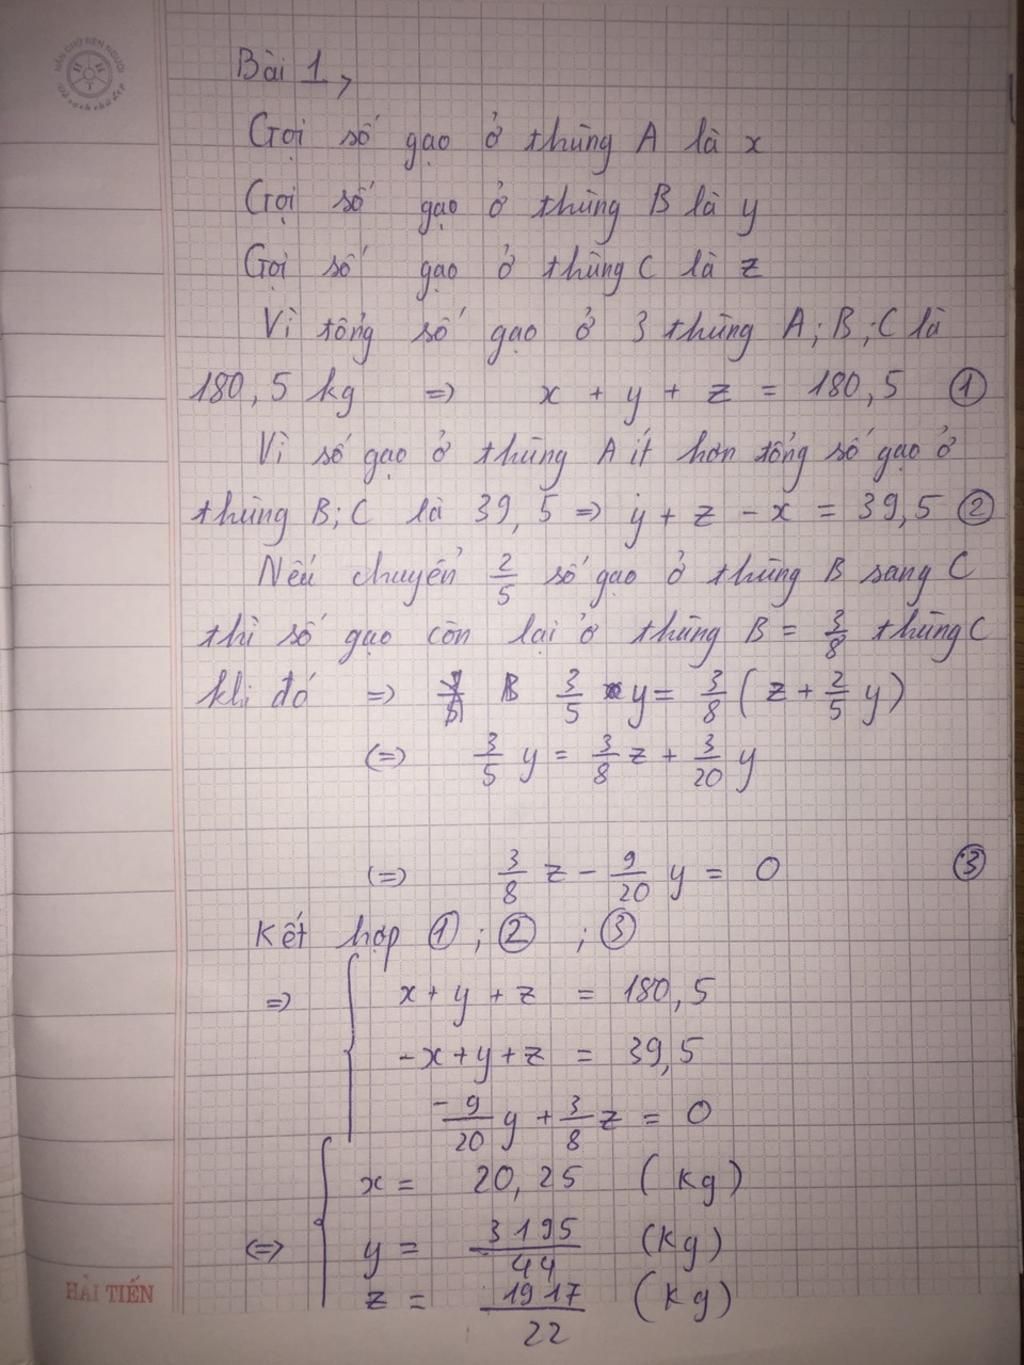 Bài 1,
Gọi số gạo ở thùng A là x
Gọi số gạo ở thùng B là y
Gọi số gạo ở thùng C là z
Vì tổng số gạo ở 3 thùng A; B; C là
180,5 kg => x + y + z = 180,5 ①
Vì số gạo ở thùng A ít hơn tổng số gạo ở
thùng B; C là 39,5 => y + z - x = 39,5 ②
Nếu chuyển 2/5 số gạo ở thùng B sang C
thì số gạo còn lại ở thùng B = 3/8 thùng C
khi đó => B 3/5 y = 3/8 (z + 2/5 y)
(=) 3/5 y = 3/8 z + 3/20 y
(=) 3/8 z - 9/20 y = 0 ③
Kết hợp ①; ②; ③
=> { x + y + z = 180,5
-x + y + z = 39,5
-9/20 y + 3/8 z = 0
<=> { x = 20,25 (kg)
y = 3195/44 (kg)
z = 1917/22 (kg)
HẢI TIẾN